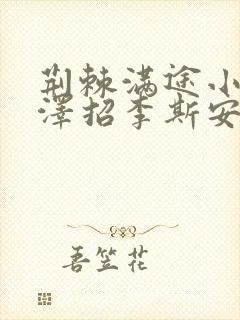 荆棘满途小
泽招李斯安
吾笠花